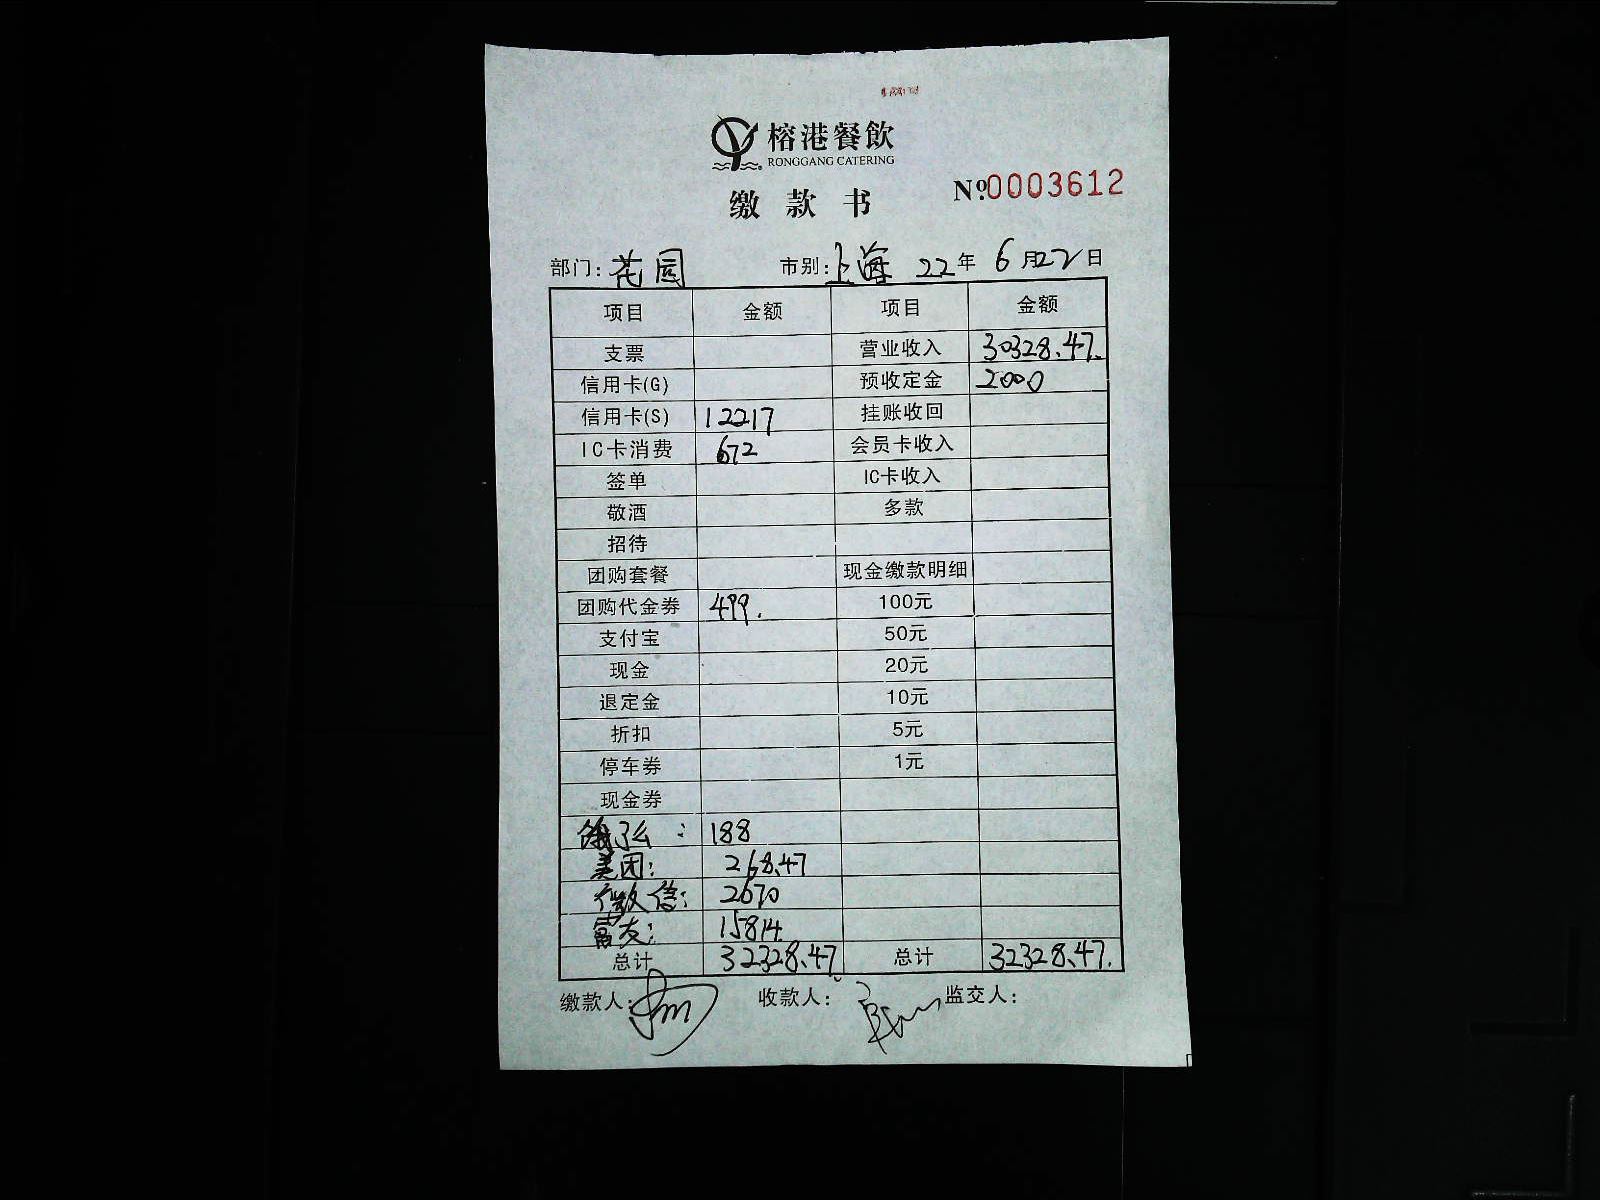 榕港餐飲
RONGGANG CATERING
缴款书
№0003612
部门：花园 市别：上海 22年6月22日
项目 金额 项目 金额
支票 营业收入 30328.47.
信用卡(G) 预收定金 2000
信用卡(S) 12217 挂账收回
IC卡消费 672 会员卡收入
签单 IC卡收入
敬酒 多款
招待
团购套餐 现金缴款明细
团购代金券 499. 100元
支付宝 50元
现金 20元
退定金 10元
折扣 5元
停车券 1元
现金券
饿了么： 188
美团： 268.47
微信： 2670
富友： 15814
总计 32328.47 总计 32328.47.
缴款人： 收款人： 监交人：